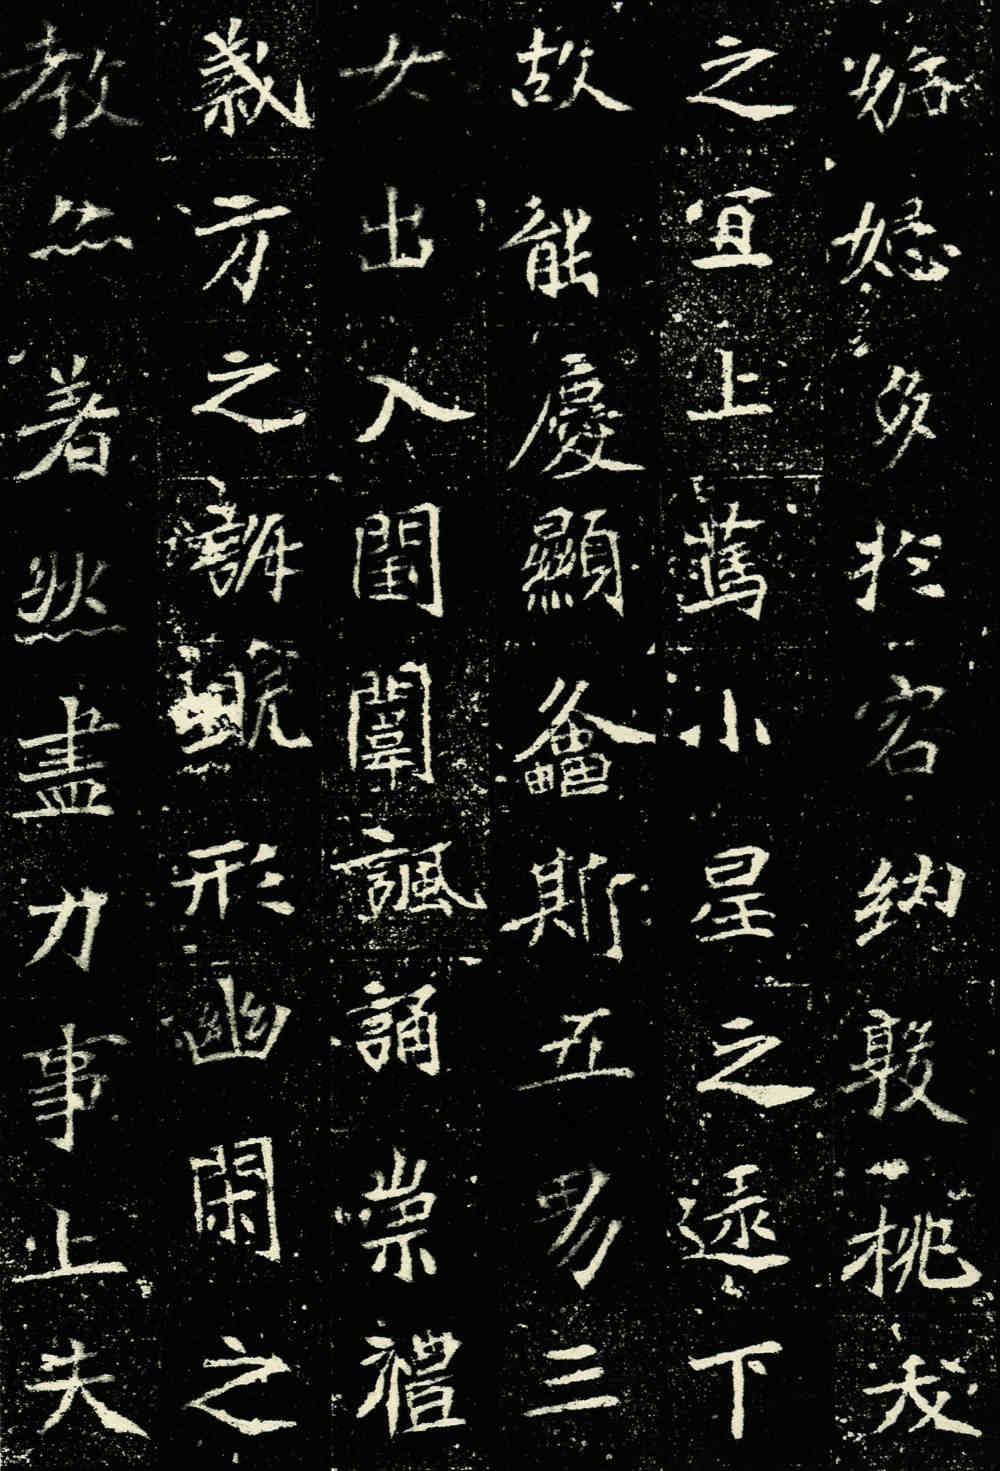 多於容納敦桃夭
之宜上篤小星之逮下
故能慶顯螽斯五男三
女出入閨闈諷誦崇禮
義方之訓既形幽閑之
教亦著然盡力事上夫